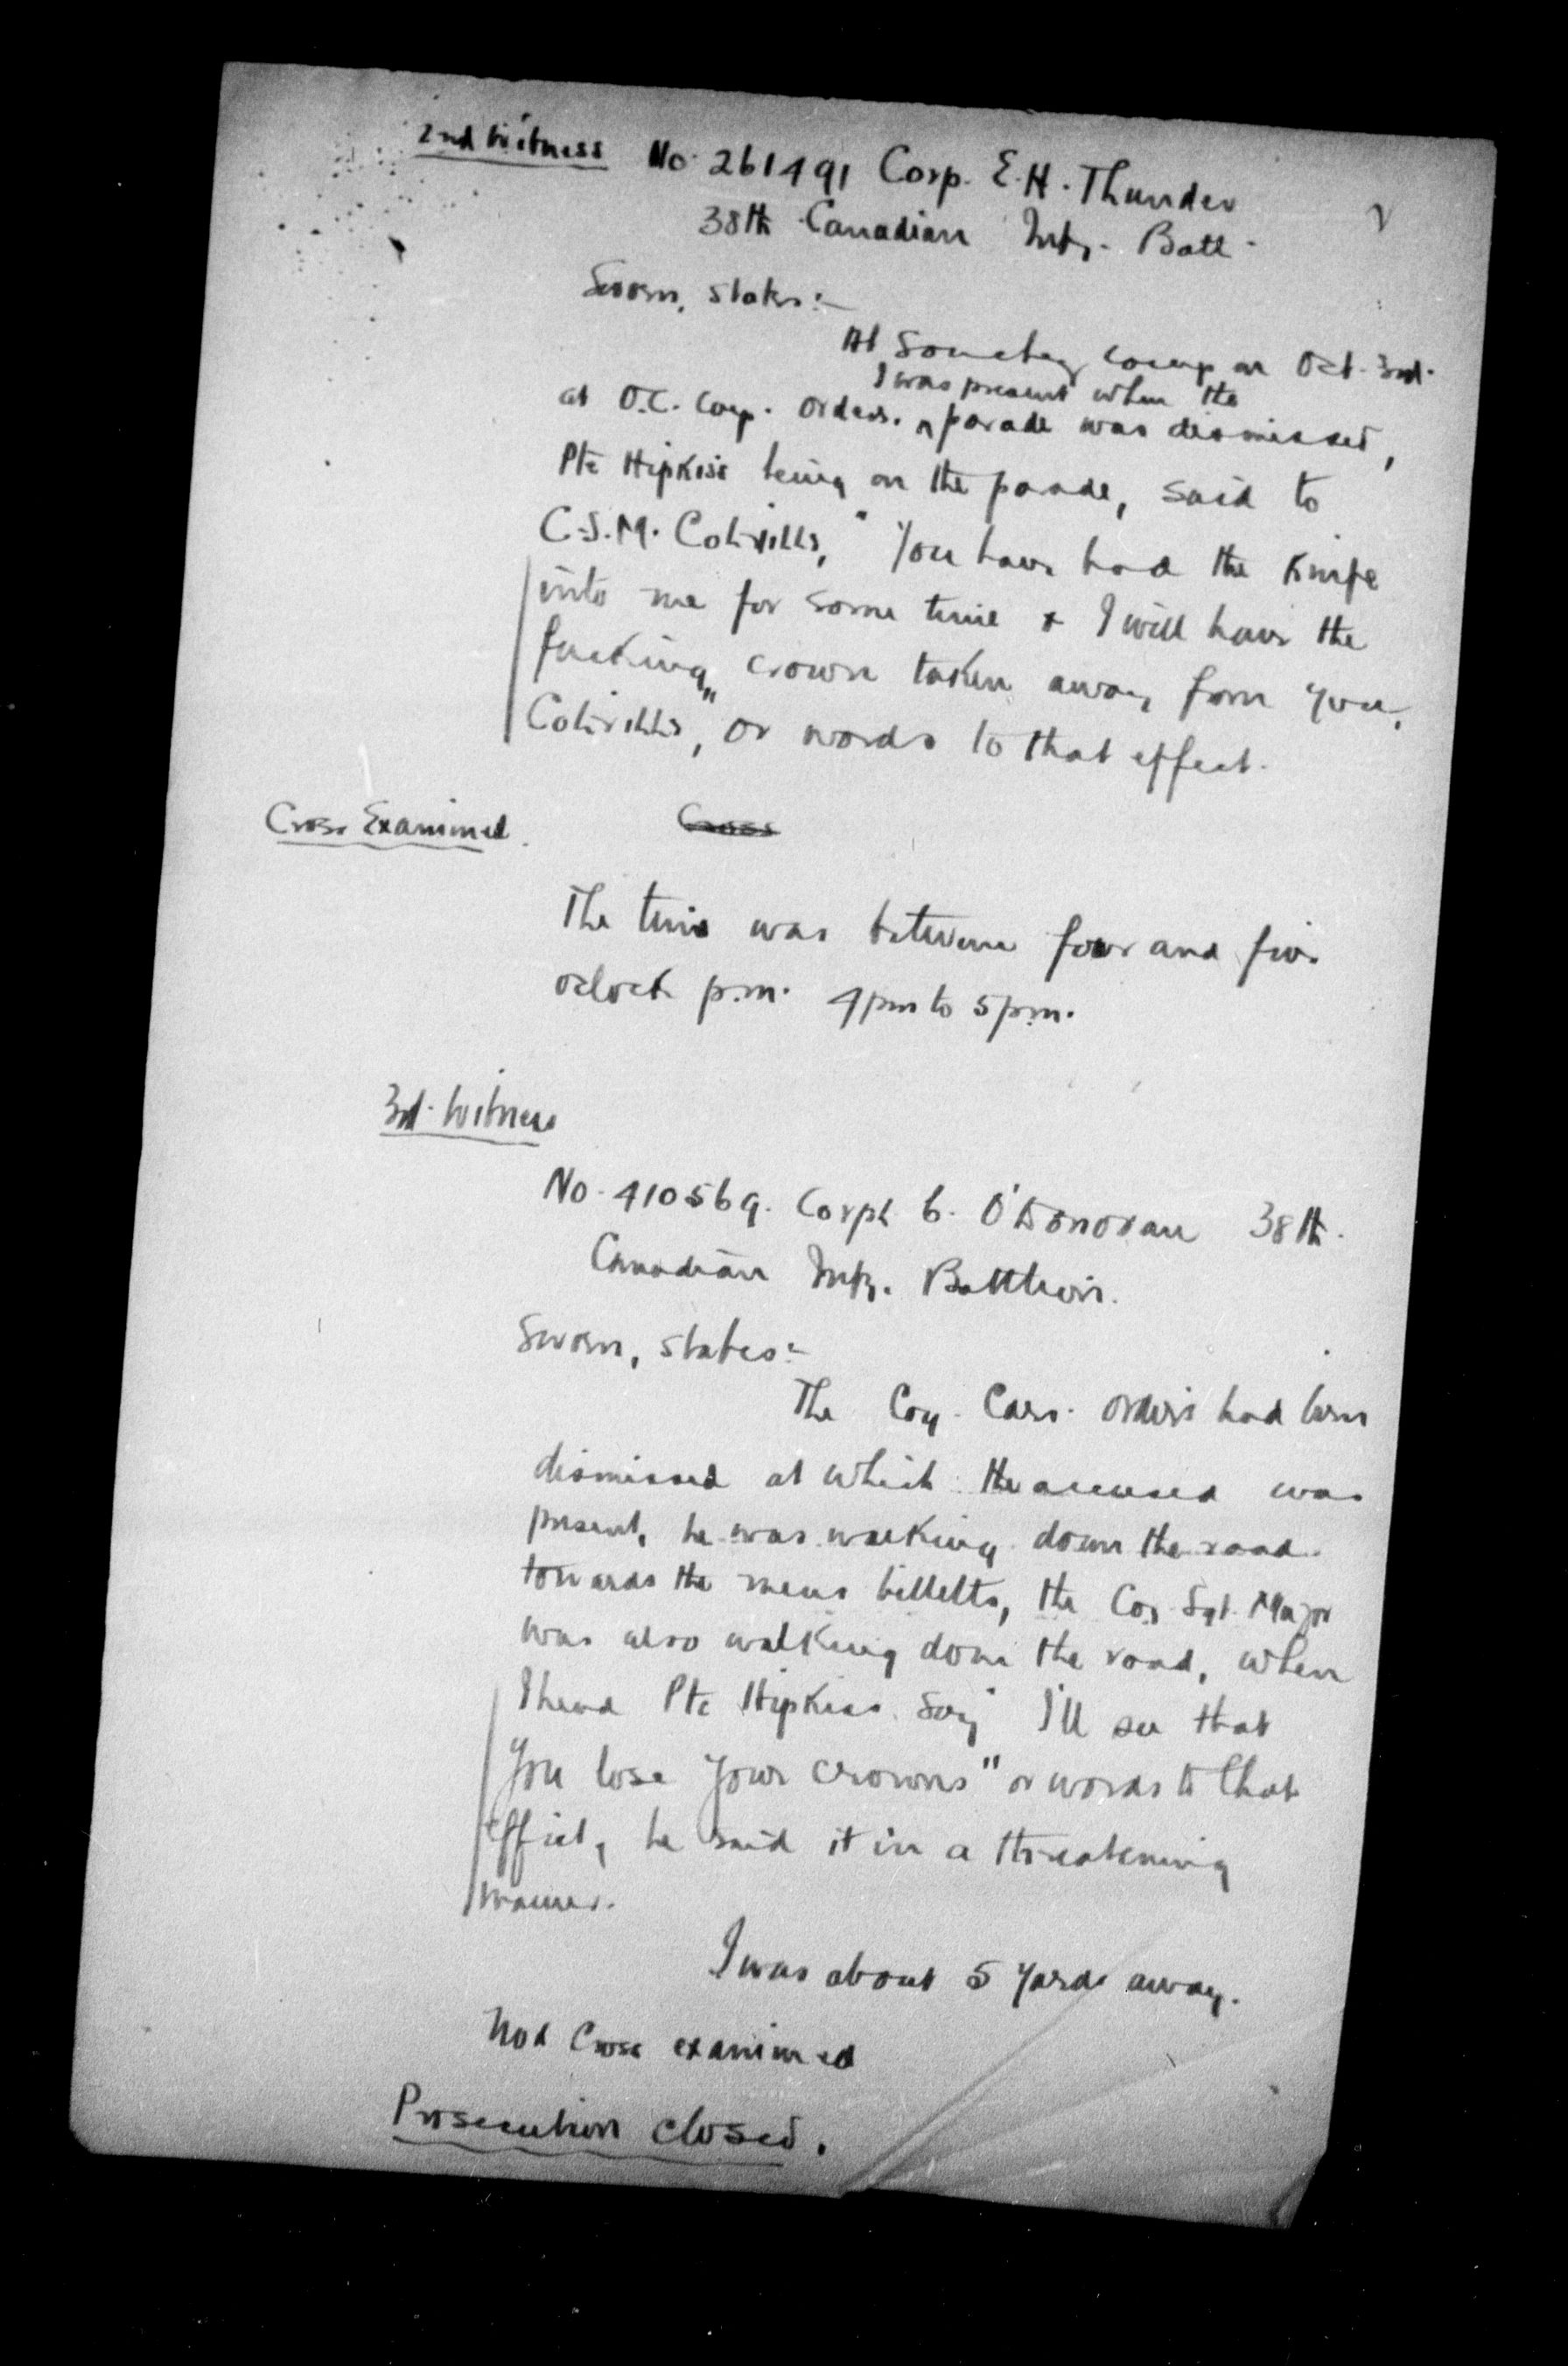 2nd Witness No. 261491 Corp. E.H. Thunder
38th Canadian Inf. Batt.
Sworn, states:-
At camp on Oct. 3rd.
I was present when the
at O.C. Coy. orders. ^ parade was dismissed,
Pte Hipkiss being on the parade, said to
C.S.M. "You have had the knife
into me for some time & I will have the
fucking crown taken away from you,
or words to that effect.
Cross Examined.
Cross
The time was between four and five
oclock p.m. 4pm to 5pm.
3rd. Witness
No. 410569. Corpl. O'Donovan 38th.
Canadian Inf. Battlion.
Sworn, states:-
The Coy. orders had been
dismissed at which the accused was
present, he was walking down the road
towards the mens billetts, the Coy Sgt. Major
was also walking down the road, when
I heard Pte Hipkiss say "I'll see that
you lose your crowns" or words to that
effect, he said it in a threatening
manner.
I was about 5 yards away.
Not Cross examined
Prosecution closed.